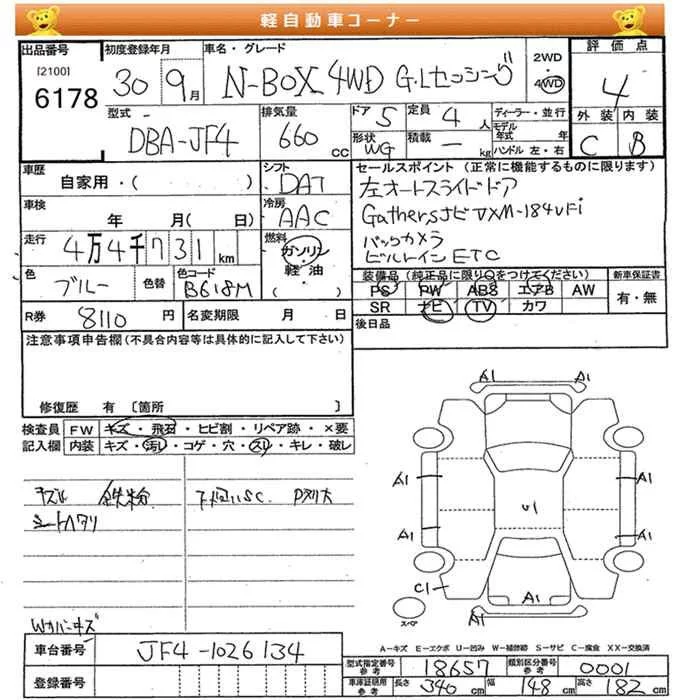 軽自動車コーナー
出品番号 [2100] 6178
初度登録年月 30 9月
車名・グレード N-BOX 4WD G・Lセッシング
2WD・4WD
評価点 4
外装 C 内装 B
型式 DBA-JF4
排気量 660 cc
ドア 5 定員 4 人
形状 WG 積載 — kg
ディーラー・並行
モデル年式 年
ハンドル 左・右
車歴 自家用・( )
シフト DAT
車検 年 月( 日)
冷房 AAC
走行 4万4千731 km
燃料 ガソリン・軽油・( )
色 ブルー 色替
色コード B618M
R券 8110 円 名変期限 月 日
セールスポイント(正常に機能するものに限ります)
左オートスライドドア
Gathersナビ VXM-184VFi
バックカメラ
ビルトインETC
装備品(純正品に限り○をつけてください) 新車保証書
PS PW ABS エアB AW 有・無
SR ナビ TV カワ
後日品
注意事項申告欄(不具合内容等は具体的に記入して下さい)
修復歴 有 〔箇所 〕
検査員 FW キズ・飛石・ヒビ割・リペア跡・×要
記入欄 内装 キズ・汚レ・コゲ・穴・スリ・キレ・破レ
キズ小 鉄粉 下廻りSC.
シートヘタリ
Wカバーキズ
A1 A1
A1 A1
U1
A1 A1
C1 A1
スペア
A1 A1
A-キズ E-エクボ U-凹み W-補修跡 S-サビ C-腐食 XX-交換済
車台番号 JF4-1026134
登録番号
型式指定番号 参考 18657 類別区分番号 参考 0001
車庫証明用 参考 長さ 340 cm 幅 148 cm 高さ 182 cm